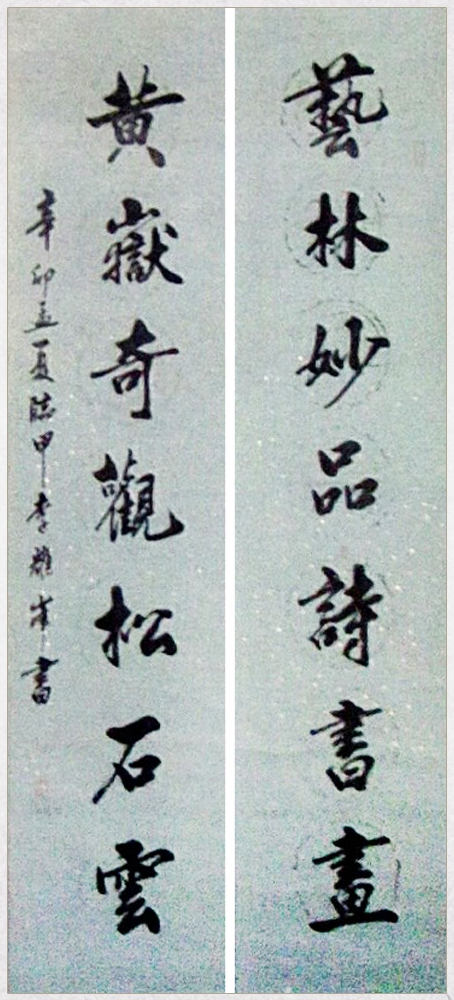 藝林妙品詩書畫
黄嶽奇觀松石雲
辛卯孟夏臨甲李雄峯書